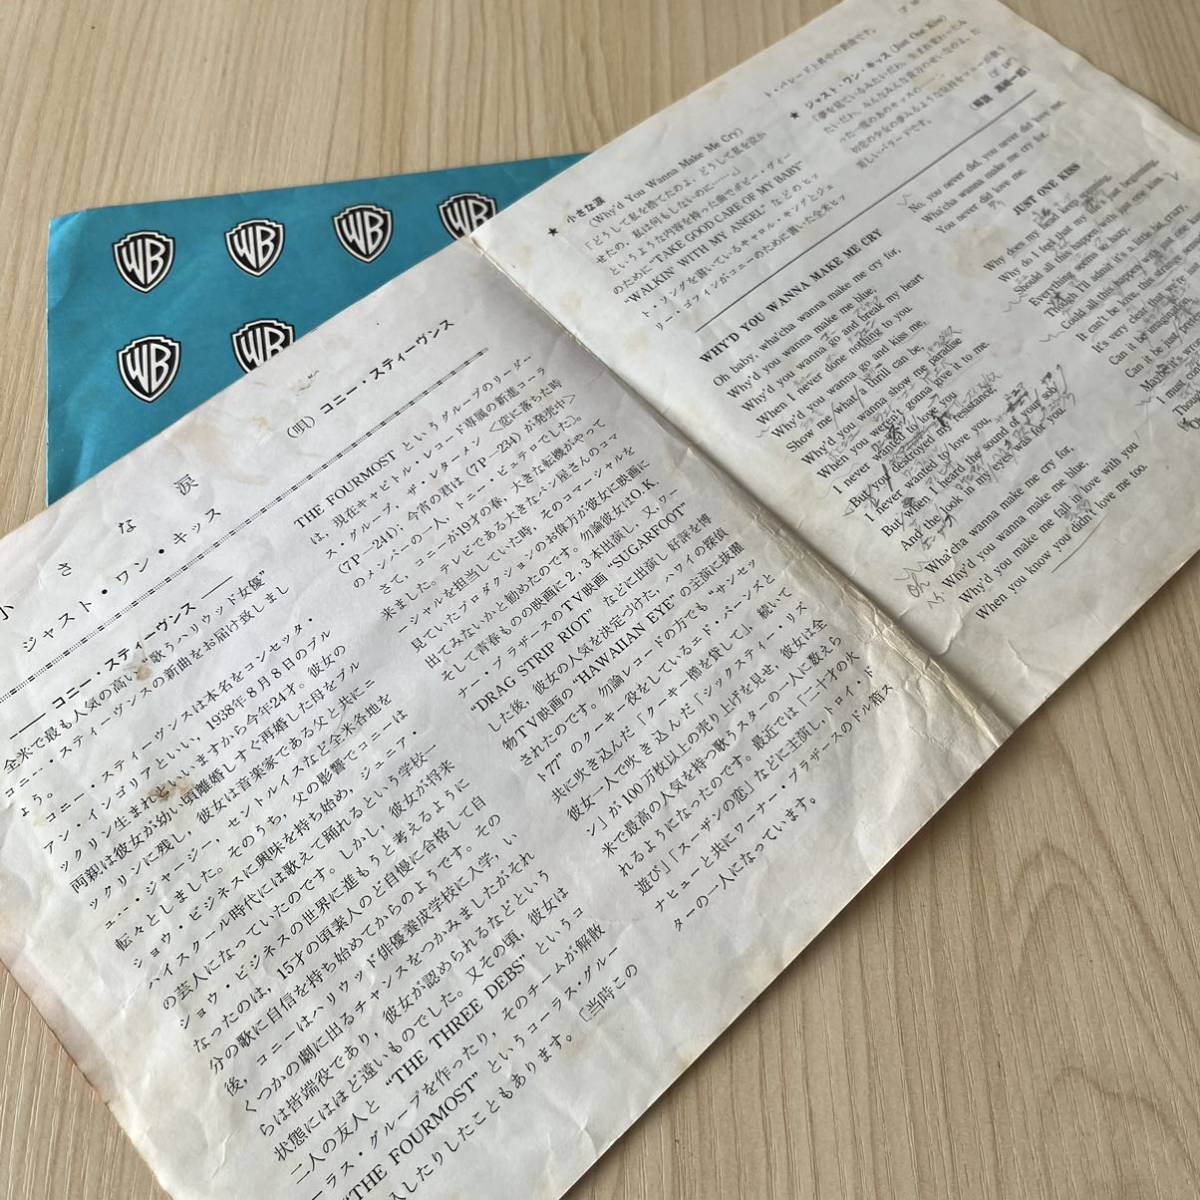 WB WB WB WB
WB WB
小さな涙
ジャスト・ワン・キッス
(唄) コニー・スティーヴンス
── コニー・スティーヴンス ──
全米で最も人気の高い“歌うハリウッド女優”
コニー・スティーヴンスの新曲をお届け致しまし
ょう。
コニー・スティーヴンスは本名をコンセッタ・
アン・インゴリアといい，1938年8月8日のブル
ックリン生まれといいますから今年24才。彼女の
両親は彼女が幼い頃離婚しすぐ再婚した母をブル
ックリンに残し，彼女は音楽家である父と共にニ
ュー・ジャージー，セントルイスなど全米各地を
転々としました。そのうち，父の影響でコニーは
ショウ・ビジネスに興味を持ち始め，ジュニア・
ハイスクール時代には歌えて踊れるという学校一
の芸人になっていたのです。しかし，彼女が将来
ショウ・ビジネスの世界に進もうと考えるように
なったのは，15才の頃素人のど自慢に合格して自
分の歌に自信を持ち始めてからのようです。その
後，コニーはハリウッド俳優養成学校に入学，い
くつかの劇に出るチャンスをつかみましたがそれ
らは皆端役であり，彼女が認められるなどという
状態にはほど遠いものでした。又その頃，彼女は
二人の友人と“THE THREE DEBS”というコ
ーラス・グループを作ったり，そのチームが解散
“THE FOURMOST”というコーラス・グルー
入したりしたこともあります。〔当時この
THE FOURMOST というグループのリーダー
は，現在キャピトル・レコード専属の新進コーラ
ス・グループ，ザ・レターメン〈恋に落ちた時
(7P—241)；今宵の君は (7P—224) が発売中〉
のメンバーの一人，トニー・ビュテラでした〕。
さて，コニーが19才の春，大きな転機がやって
来ました。テレビである大きなパン屋さんのコマ
ーシャルを担当していた時，そのコマーシャルを
見ていたプロダクションのお偉方が彼女に映画に
出てみないかと勧めたのです。勿論彼女はO.K.
そして青春ものの映画に2，3本出演し，又，ワー
ナー・ブラザースのTV映画“SUGARFOOT”
“DRAG STRIP RIOT”などに出演し好評を博
した後，彼女の人気を決定づけた，ハワイの探偵
物TV映画の“HAWAIIAN EYE”の主演に抜擢
されたのです。勿論レコードの方でも“サンセッ
ト77”のクーキー役をしているエド・バーンズと
共に吹き込んだ「クーキー櫛を貸して」，続いて
彼女一人で吹き込んだ「シックスティーン・リーズ
ン」が100万枚以上の売り上げを見せ，彼女は全
米で最高の人気を持つ歌うスターの一人に数えら
れるようになったのです。最近では「二十才の火
遊び」「スーザンの恋」などに主演し，トロイ・ド
ナヒューと共にワーナー・ブラザースのドル箱ス
ターの一人になっています。
★ 小さな涙
(Why'd You Wanna Make Me Cry)
「どうして私を捨てたのよ，どうして私を泣か
せたの，私は何もしないのに——」
というような内容を持った曲でボビー・ヴィー
のために“TAKE GOOD CARE OF MY BABY”
“WALKIN' WITH MY ANGEL”などのヒッ
ト・ソングを書いているキャロル・キングとジェ
リー・ゴフィンがコニーのために書いた全米ヒッ
ト・パレード上昇中の新曲です。
★ ジャスト・ワン・キッス (Just One Kiss)
WHY'D YOU WANNA MAKE ME CRY
Oh baby, what'cha wanna make me cry for,
Why'd you wanna make me blue,
Why'd you wanna go and break my heart
When I never done nothing to you.
Why'd you wanna go and kiss me,
Show me what a thrill can be,
Why'd you wanna show me paradise
When you weren't gonna give it to me.
I never wanted to love you,
But you destroyed my resistance.
I never wanted to love you,
But when I heard the sound of your sobs
And the look in my eyes was for you.
Wha'cha wanna make me cry for,
Why'd you wanna make me blue,
Why'd you make me fall in love with you
When you know you didn't love me too.
No, you never did, you never did love me.
Wha'cha wanna make me cry for.
You never did love me.
JUST ONE KISS